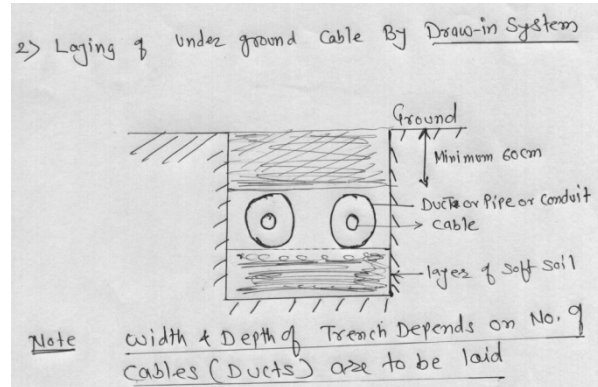 2) Laying of under ground Cable By Draw-in System
Ground
Minimum 60cm
Ducts or Pipe or Conduit
cable
layer of soft soil
Note width & Depth of Trench Depends on No. of
Cables (Ducts) are to be laid